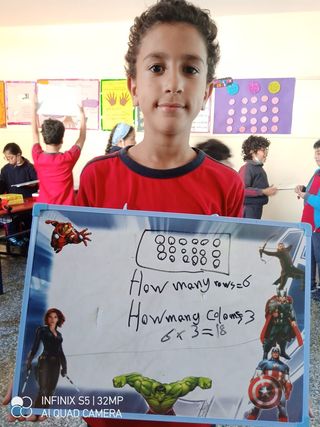 How many rows=6
How many Coloms 3
6 x 3 = 18
INFINIX S5 | 32MP
AI QUAD CAMERA